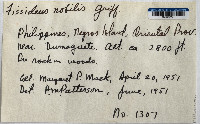 Fissidens nobilis Griff.
Philippines, Negros Island, Oriental Prov.
near Dumaguete, alt. ca 2800 ft.
On rock in woods.
Col. Margaret P. Mack, April 20, 1951
Det. June, 1951
No. 1307